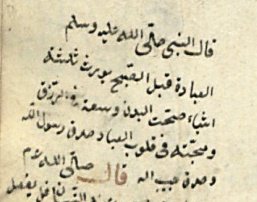 قال النبي صلى الله عليه وسلم
العبادة قبل الصبح يورث ثلثة
اشياء صحت البدن وسعة في الرزق
ومحبته في قلوب العباد صدق رسول الله
وصدق حبيب الله قال صلى الله